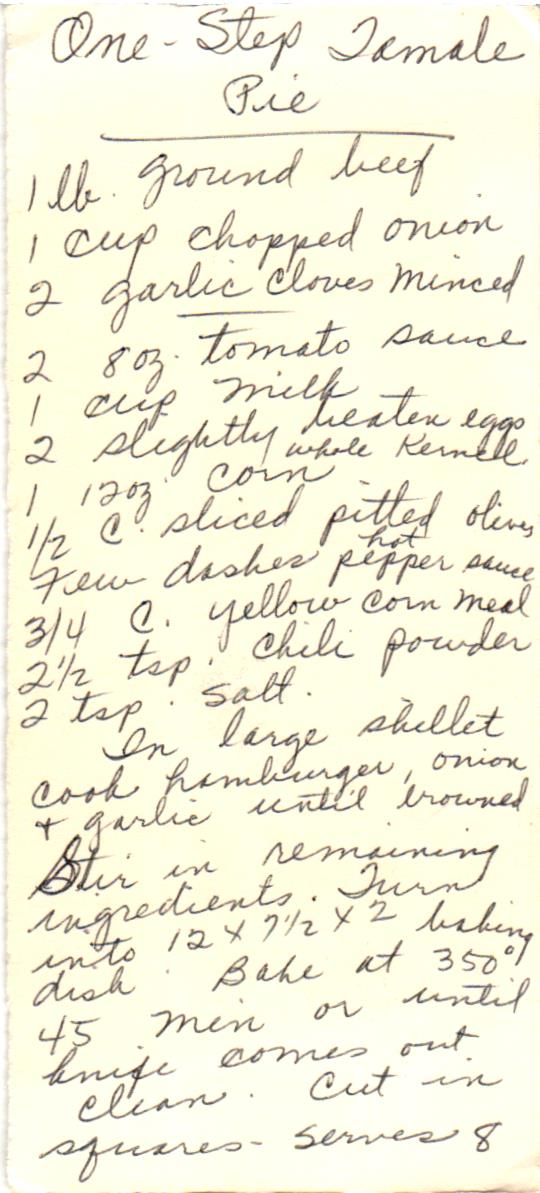 One-Step Tamale
Pie
1 lb. ground beef
1 cup chopped onion
2 garlic cloves minced
2 8 oz. tomato sauce
1 cup milk
2 slightly beaten eggs
1 12 oz. whole Kernell corn
1/2 C. sliced pitted olives
Few dashes hot pepper sauce
3/4 C. yellow corn meal
2 1/2 tsp. chili powder
2 tsp. salt.
In large skillet
cook hamburger, onion
+ garlic until browned
Stir in remaining
ingredients. Turn
into 12 x 7 1/2 x 2 baking
dish. Bake at 350°
45 min or until
knife comes out
clean. Cut in
squares - serves 8